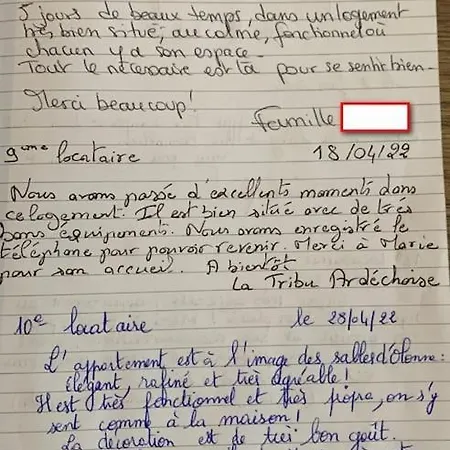 5 jours de beaux temps, dans un logement
très bien situé, au calme, fonctionnel où
chacun y a son espace.
Tout le nécessaire est là pour se sentir bien.
Merci beaucoup!
Famille
9ème locataire 18/04/22
Nous avons passé d'excellents moments dans
ce logement. Il est bien situé avec de très
bons équipements. Nous avons enregistré le
téléphone pour pouvoir revenir. Merci à Marie
pour son accueil. A bientôt
La Tribu Ardéchoise
10e locataire le 28/04/22
L'appartement est à l'image des sables d'olonne:
élégant, rafiné et très agréable!
Il est très fonctionnel et très propre, on s'y
sent comme à la maison!
La décoration est de très bon goût.